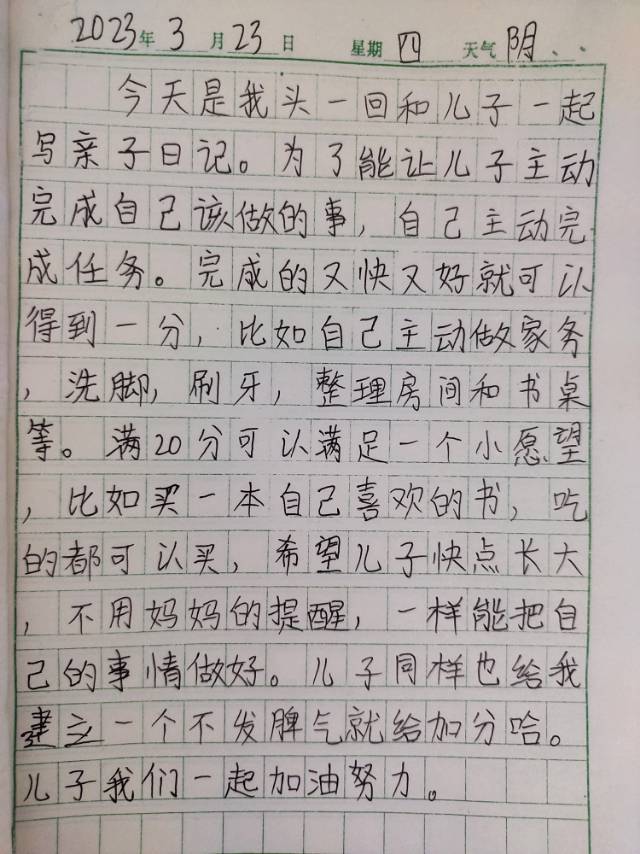 2023年3月23日 星期四 天气阴..
今天是我头一回和儿子一起
写亲子日记。为了能让儿子主动
完成自己该做的事,自己主动完
成任务。完成的又快又好就可以
得到一分,比如自己主动做家务
,洗脚,刷牙,整理房间和书桌
等。满20分可以满足一个小愿望
,比如买一本自己喜欢的书,吃
的都可以买,希望儿子快点长大
,不用妈妈的提醒,一样能把自
己的事情做好。儿子同样也给我
建立一个不发脾气就给加分哈。
儿子我们一起加油努力。